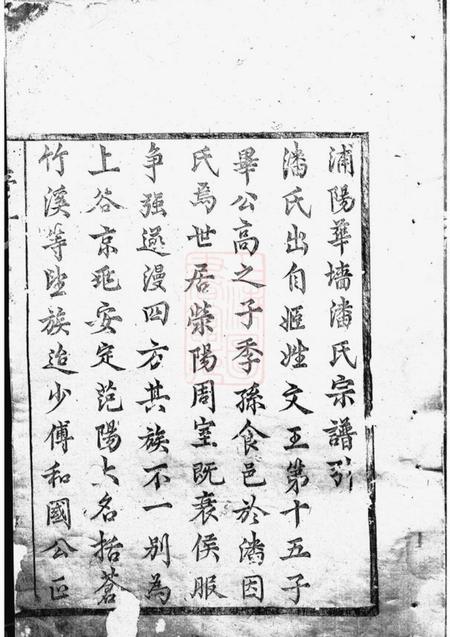 浦陽華墻潘氏宗譜引
潘氏出自姬姓文王第十五子
畢公高之子季孫食邑於潘因
氏焉世居滎陽周室既衰侯服
争強遂漫四方其族不一别為
上谷京兆安定范陽大名括蒼
竹溪等望族迨少傅和國公叵